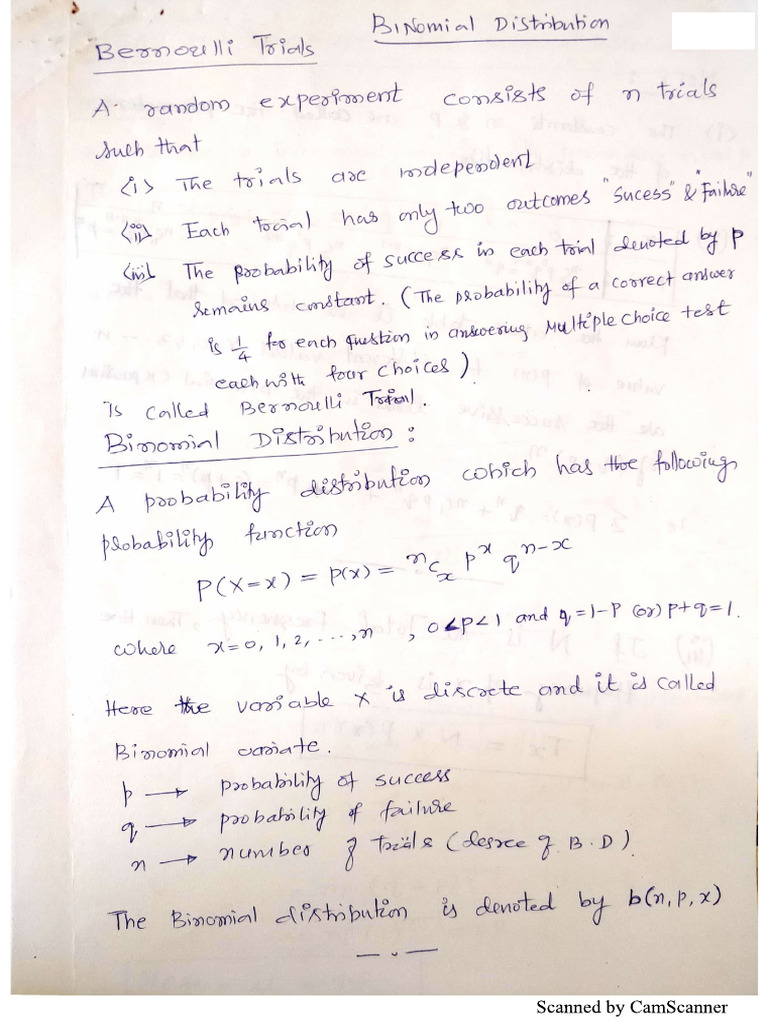 Binomial Distribution
Bernoulli Trials
A random experiment consists of n trials
such that
<i> The trials are independent
<ii> Each trial has only two outcomes "Sucess" & "Failure"
<iii> The probability of success in each trial denoted by p
remains constant. (The probability of a correct answer
is 1/4 for each question in answering Multiple choice test
each with four choices)
is called Bernoulli Trial.
Binomial Distribution :
A probability distribution which has the following
probability function
P(X=x) = p(x) = ⁿCₓ pˣ qⁿ⁻ˣ
where x=0, 1, 2, ..., n , 0<p<1 and q=1-p (or) p+q=1.
Here the variable X is discrete and it is called
Binomial variate.
p → probability of success
q → probability of failure
n → number of trials (degree of B.D)
The Binomial distribution is denoted by b(n, p, x)
Scanned by CamScanner